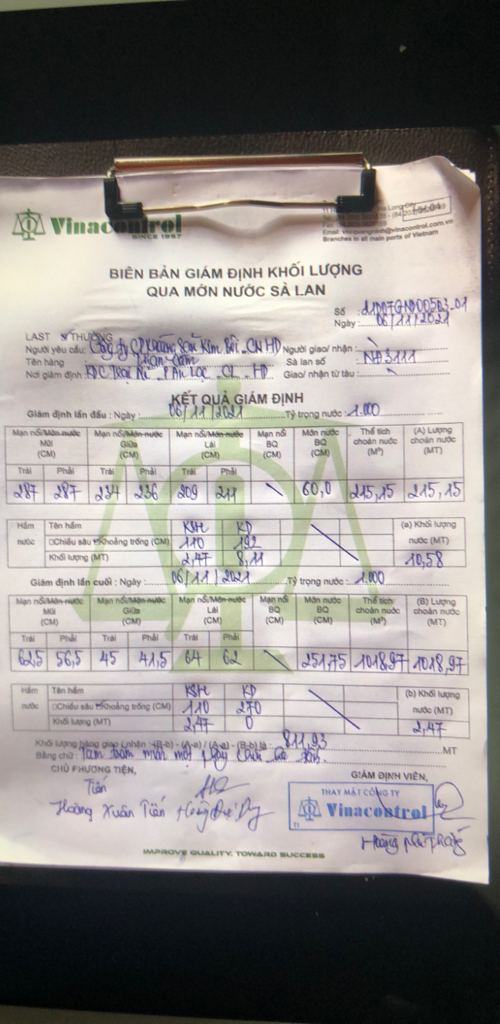 Vinacontrol
SINCE 1957
Branches in all main ports of Vietnam
BIÊN BẢN GIÁM ĐỊNH KHỐI LƯỢNG
QUA MỚN NƯỚC SÀ LAN
Số
Ngày: 06/11/2021
LAST THƯỜNG
Người yêu cầu: Công ty CP Người giao/ nhận:
Tên hàng Than cám Sà lan số : NA3111
Nơi giám định: Giao/ nhận từ tàu:
KẾT QUẢ GIÁM ĐỊNH
Giám định lần đầu : Ngày : 06/11/2021 Tỷ trọng nước : 1.000
Mạn nổi/Mớn nước Mũi (CM) Mạn nổi/Mớn nước Giữa (CM) Mạn nổi/Mớn nước Lái (CM) Mạn nổi BQ (CM) Mớn nước BQ (CM) Thể tích choán nước (M³) (A) Lượng choán nước (MT)
Trái Phải Trái Phải Trái Phải
287 287 234 236 209 211 \ 60,0 215,15 215,15
Hầm nước Tên hầm KSH KD (a) Khối lượng nước (MT)
□Chiều sâu Khoảng trống (CM) 110 192
Khối lượng (MT) 2,47 8,11 10,58
Giám định lần cuối : Ngày : 06/11/2021 Tỷ trọng nước : 1.000
Mạn nổi/Mớn nước Mũi (CM) Mạn nổi/Mớn nước Giữa (CM) Mạn nổi/Mớn nước Lái (CM) Mạn nổi BQ (CM) Mớn nước BQ (CM) Thể tích choán nước (M³) (B) Lượng choán nước (MT)
Trái Phải Trái Phải Trái Phải
62,5 56,5 45 41,5 64 62 \ 251,75 1018,97 1018,97
Hầm nước Tên hầm KSH KD (b) Khối lượng nước (MT)
□Chiều sâu Khoảng trống (CM) 110 270
Khối lượng (MT) 2,47 0 2,47
Khối lượng hàng giao / nhận (B-b) - (A-a) / (A-a) - (B-b) là : 811,93 MT
Bằng chữ: Tám trăm mười một phẩy chín ba tấn.
CHỦ PHƯƠNG TIỆN, GIÁM ĐỊNH VIÊN,
Tiến
Hoàng Xuân Tiến
THAY MẶT CÔNG TY
Vinacontrol
IMPROVE QUALITY, TOWARD SUCCESS